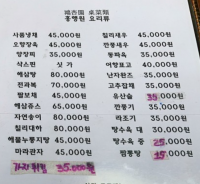 홍행원 요리류
사품냉채 45,000원
오향장육 45,000원
양장피 35,000원
삭스핀 싯가
해삼탕 80,000원
전가복 70,000원
팔보채 45,000원
해삼쥬스 65,000원
자연송이 80,000원
칠리대하 80,000원
해물누룽지탕 45,000원
마라판자 45,000원
가지튀김 35,000원
칠리새우 45,000원
깐풍새우 45,000원
동파육 35,000원
어향표고 40,000원
난자완즈 35,000원
고추잡채 35,000원
유산슬 35,000원
깐풍기 35,000원
라조기 35,000원
탕수육 대 30,000원
탕수육 중 25,000원
짬뽕탕 15,000원